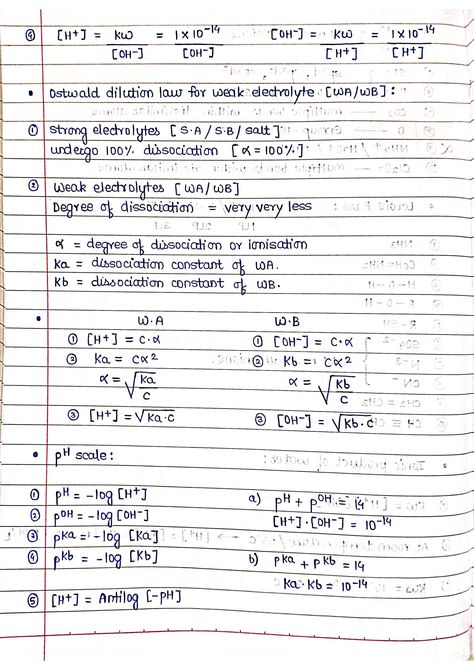 ④ [H+] = Kw/[OH-] = 1×10⁻¹⁴/[OH-]   [OH-] = Kw/[H+] = 1×10⁻¹⁴/[H+]
• Ostwald dilution law for weak electrolyte [WA/WB] :
① Strong electrolytes [S.A / S.B / salt]
undergo 100% dissociation [α = 100%]
② Weak electrolytes [WA/WB]
Degree of dissociation = very very less
α = degree of dissociation or ionisation
Ka = dissociation constant of WA.
Kb = dissociation constant of WB.
• W.A   W.B
① [H+] = C.α   ① [OH-] = C.α
② Ka = Cα²   ② Kb = Cα²
α = √(Ka/C)   α = √(Kb/C)
③ [H+] = √Ka.C   ③ [OH-] = √Kb.C
• pH scale :
① pH = -log [H+]   a) pH + pOH = 14
② pOH = -log [OH-]   [H+].[OH-] = 10⁻¹⁴
③ pKa = -log [Ka]
④ pKb = -log [Kb]   b) pKa + pKb = 14
Ka.Kb = 10⁻¹⁴
⑤ [H+] = Antilog [-pH]